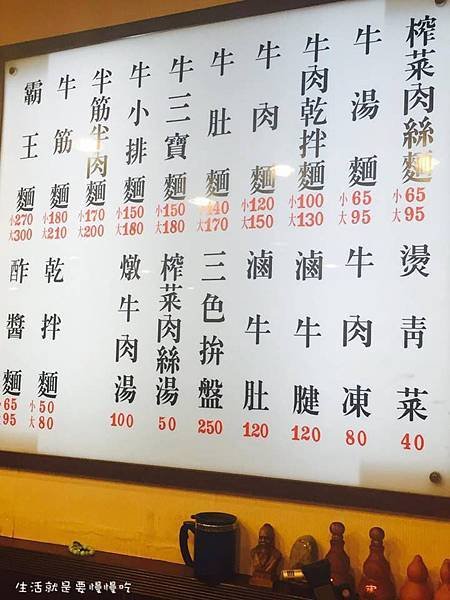 榨菜肉絲麵 小65 大95
牛湯麵 小65 大95
牛肉乾拌麵 小100 大130
牛肉麵 小120 大150
牛肚麵 小140 大170
牛三寶麵 小150 大180
牛小排麵 小150 大180
半筋半肉麵 小170 大200
牛筋麵 小180 大210
霸王麵 小270 大300
燙青菜 40
牛肉凍 80
滷牛腱 120
滷牛肚 120
三色拚盤 250
榨菜肉絲湯 50
燉牛肉湯 100
乾拌麵 小50 大80
酢醬麵 小65 大95
生活就是要慢慢吃